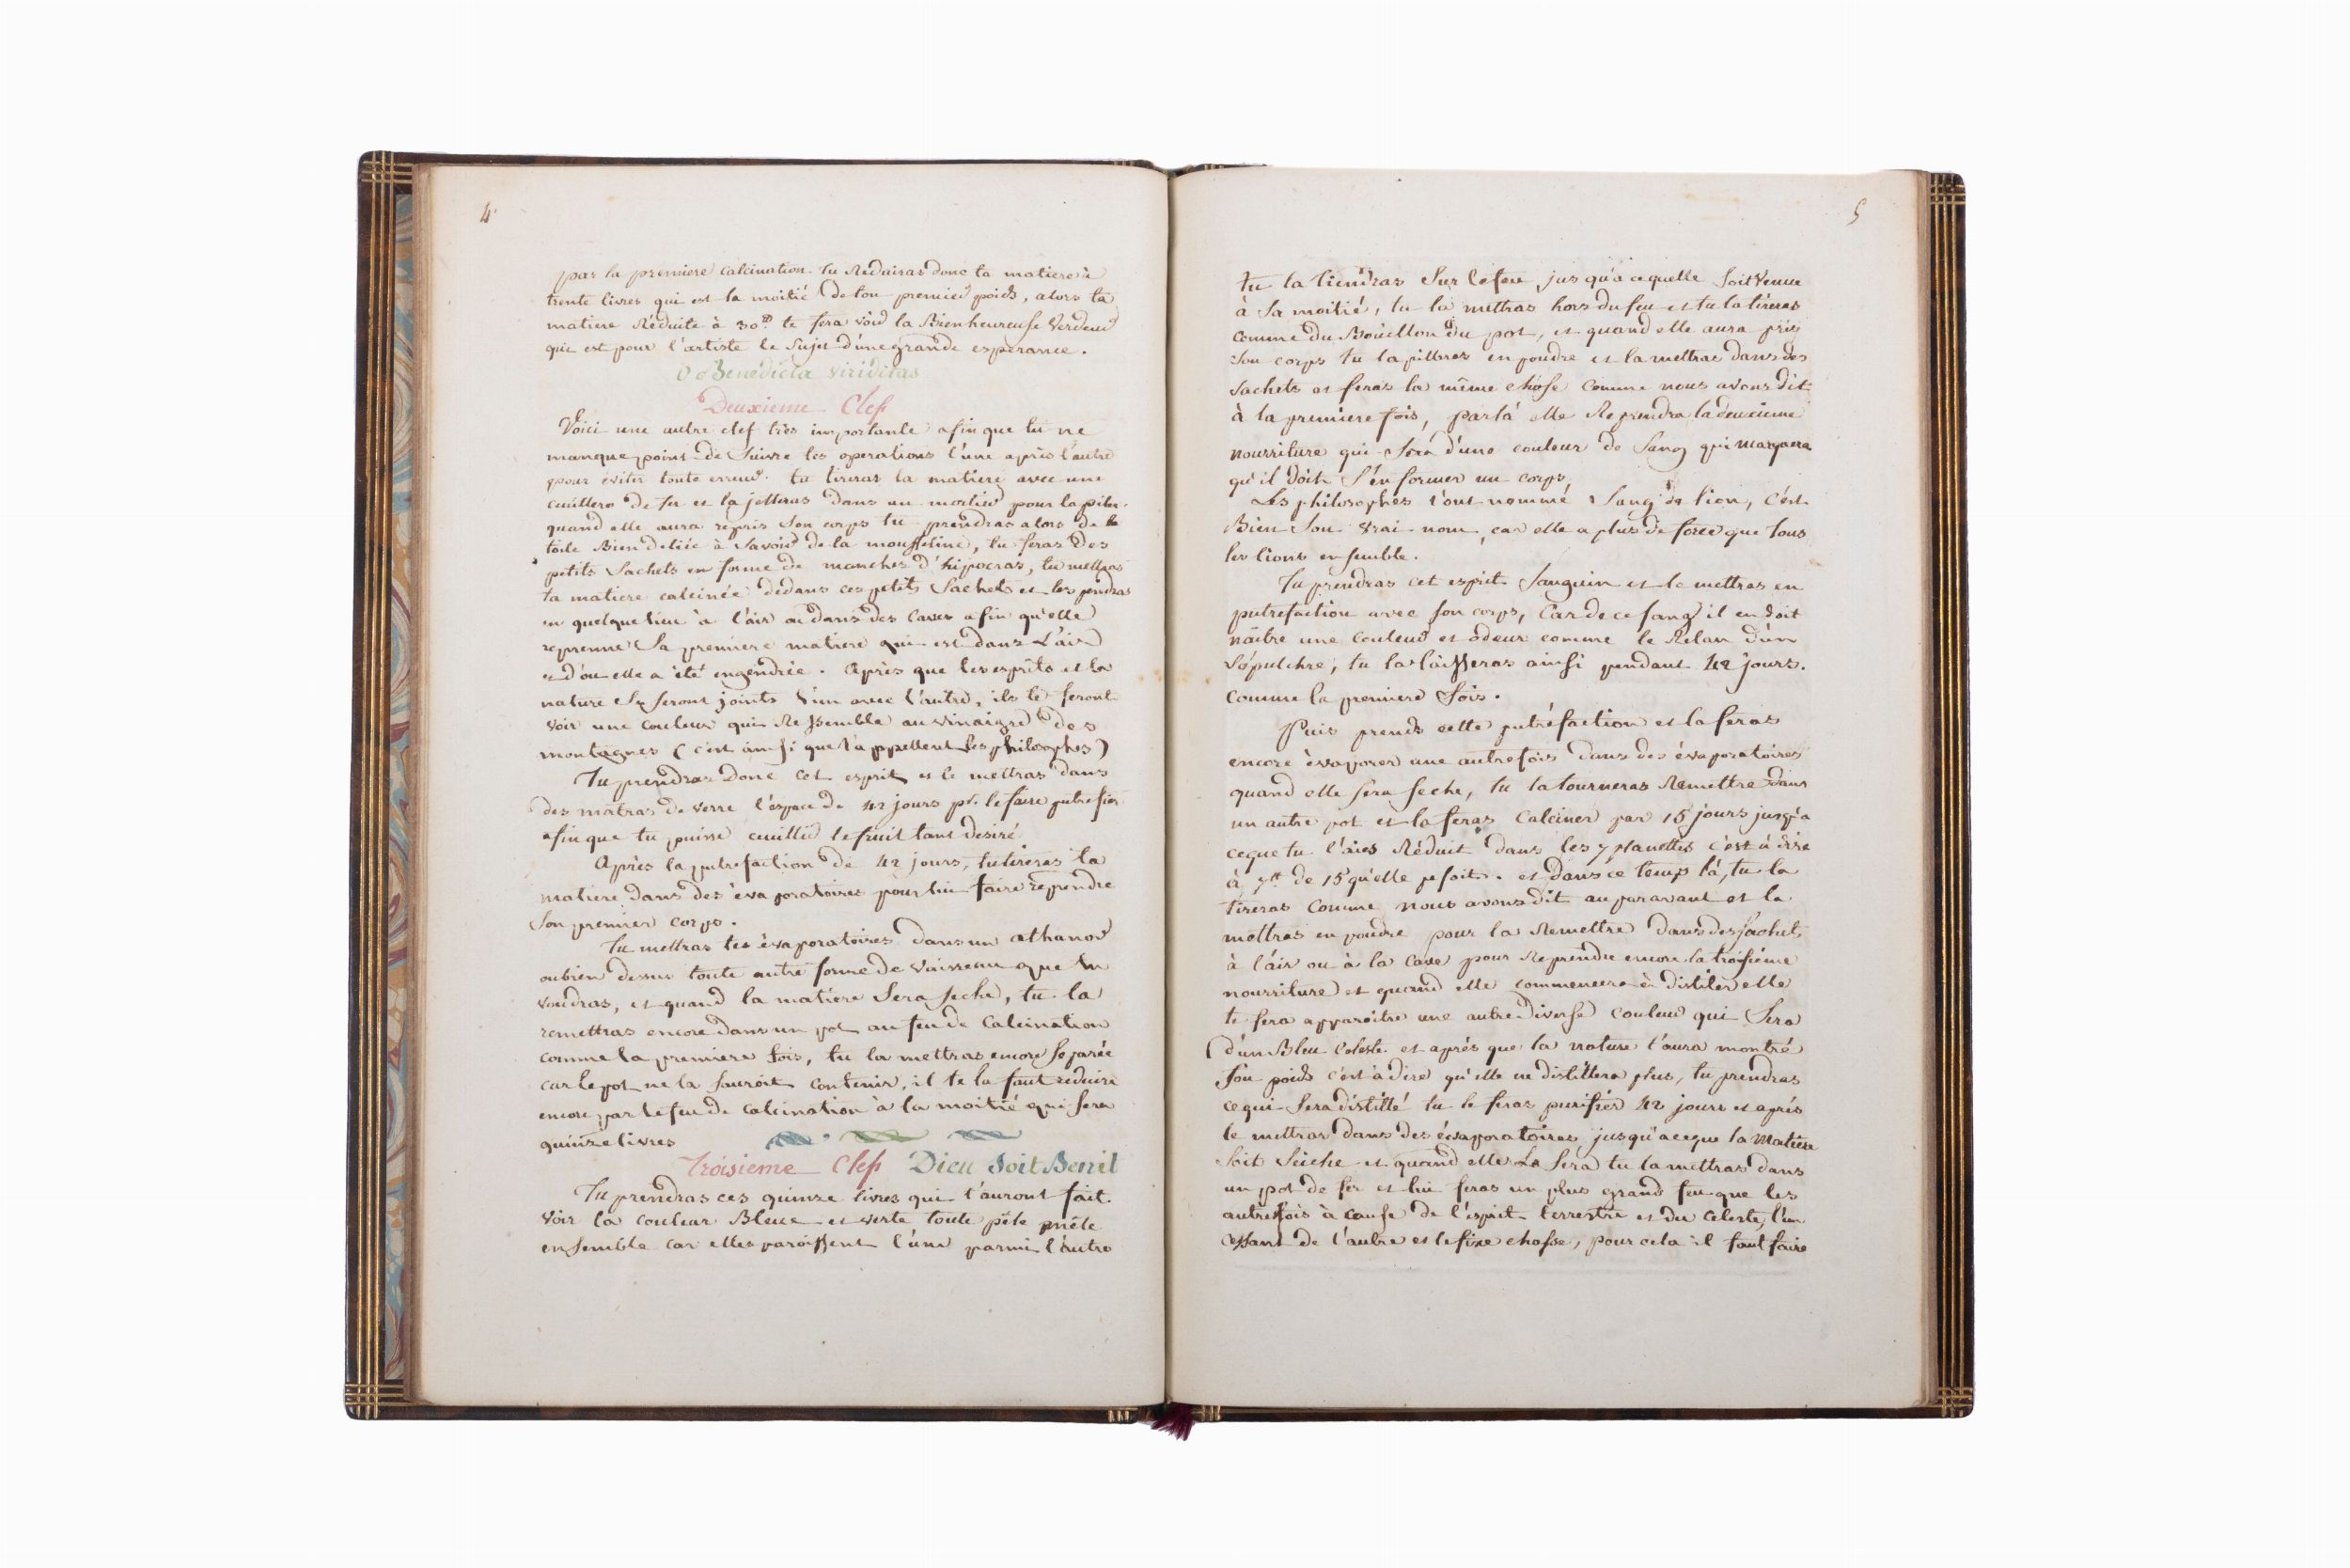 4
par la premiere calcination tu Reduiras donc ta matiere à
trente livres qui est la moitié de ton premier poids, alors ta
matiere Réduite à 30 te fera voir la Bienheureuse Verdeur
qui est pour l'artiste le sujet d'une grande espérance.
O Benedicta viriditas
Deuxieme Clef
Voici une autre clef très importante afin que tu ne
manque point de suivre les operations l'une après l'autre
pour éviter toute erreur. tu tireras la matiere avec une
cuillere de fer et la jetteras dans un mortier pour la piler.
quand elle aura repris son corps tu prendras alors de la
toile Bien deliée à savoir de la mousseline, tu feras des
petits sachets en forme de manches d'hipocras, tu mettras
ta matiere calcinée dedans ces petits sachets et les pendras
en quelque lieu à l'air ou dans des caves afin qu'elle
reprenne sa premiere matiere qui est dans L'air
d'ou elle a été engendrée. Après que les esprits et la
nature se seront joints l'un avec l'autre, ils te feront
voir une couleur qui Ressemble au vinaigre des
montagnes (c'est ainsi que l'appellent les philosophes)
Tu prendras Donc cet esprit et le mettras dans
des matras de verre l'espace de 42 jours pr. le faire putrefier
afin que tu puisse cuillir le fruit tant desiré
Après la putrefaction de 42 jours, tu tireras ta
matiere dans des évaporatoires pour lui faire reprendre
Son premier corps.
Tu mettras tes évaporatoires dans un athanor
oubien dessus toute autre forme de vaisseau que tu
voudras, et quand la matiere Sera seche, tu la
remettras encore dans un pot au feu de Calcination
comme la premiere fois, tu la mettras encore separée
car le pot ne la sauroit contenir, il te la faut reduire
encore par le feu de calcination à la moitié qui sera
quinze livres
Troisieme Clef Dieu soit Benit
Tu prendras ces quinze livres qui t'auront fait
voir la couleur Bleue et verte toute pêle mêle
ensemble car elles paroissent l'une parmi l'autre
5
tu la tiendras Sur le feu jusqu'a ce quelle soit venue
à sa moitié, tu la mettras hors du feu et tu la tireras
comme du Boüillon du pot, et quand elle aura pris
son corps tu la pilleras en poudre et la mettras dans des
sachets et feras la même chose comme nous avons dit
à la premiere fois, par là elle Reprendra la deuxieme
nourriture qui sera d'une couleur de Sang qui marquera
qu'il doit s'en former un corps,
Les philosophes l'ont nommé Sang de lion, c'est
Bien Son vrai nom, car elle a plus de force que tous
les lions ensemble.
Tu prendras cet esprit sanguin et le mettras en
putrefaction avec son corps, Car de ce sang il en doit
naître une couleur et odeur comme le Relan d'un
Sépulchre, tu la laisseras ainsi pendant 42 jours.
comme la premiere fois.
Puis prends cette putréfaction et la feras
encore évaporer une autre fois dans des évaporatoires
quand elle sera seche, tu la tourneras Remettre dans
un autre pot et la feras Calciner par 15 jours jusqu'a
ceque tu l'aies Réduit dans les 7 planettes c'est à dire
à 7 de 15 qu'elle pesoit. et dans ce temps là, tu la
tireras comme nous avons dit auparavant et la
mettras en poudre pour la Remettre dans des sachets
à l'air ou à la cave pour Reprendre encore la troisiéme
nourriture et quand elle commencera à distiler elle
te fera apparoître une autre diverse couleur qui Sera
d'un Bleu Celeste et après que la nature l'aura montré
son poids c'est à dire qu'elle ne distillera plus, tu prendras
cequi sera distillé tu le feras purifier 42 jours et après
le mettras dans des évaporatoires jusqu'aceque la Matiere
soit seiche et quand elle La sera tu la mettras dans
un pot de fer et lui feras un plus grand feu que les
autresfois à cause de l'esprit terrestre et du celeste, l'un
de l'autre et le fixe chasse, pour cela il faut faire